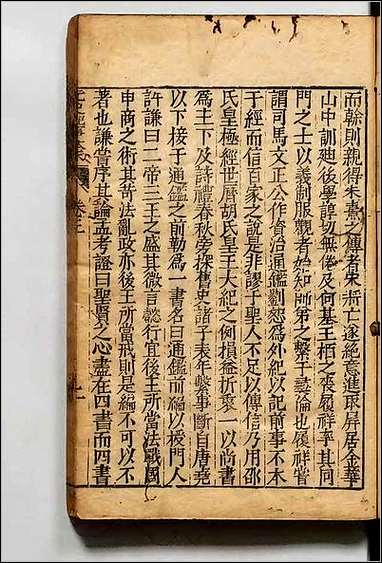 而榦則親得朱熹之傳者宋將亡遂絶意進取屏居金華
山中訓廸後學諄切無倦及何基王栢之喪履祥率其同
門之士以義制服觀者始知師弟之繫于彛倫也履祥嘗
謂司馬文正公作資治通鑑劉恕為外紀以記前事不本
于經而信百家之說是非謬于聖人不足以傳信乃用邵
氏皇極經世曆胡氏皇王大紀之例損益折衷一以尚書
為主下及詩禮春秋旁採舊史諸子表年繫事斷自唐堯
以下接于通鑑之前勒為一書名曰通鑑前編以授門人
許謙曰二帝三王之盛其微言懿行宜後王所當法戰國
申商之術其苛法亂政亦後王所當戒則是編不可以不
著也謙嘗序其論孟考證曰聖賢之心盡在四書而四書
卷三